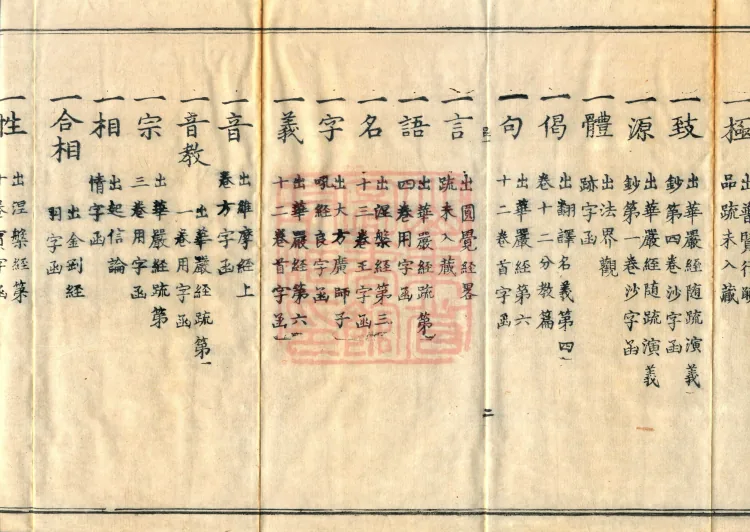 一極 出普賢行願
品疏未入藏
一致 出華嚴經随疏演義
鈔第四卷沙字函
一源 出華嚴經随疏演義
鈔第一卷沙字函
一體 出法界觀
跡字函
一偈 出翻譯名義第四
卷十二分教篇
一句 出華嚴經第六
十二卷首字函
二
一言 出圓覺經畧
疏未入藏
一語 出華嚴經疏第
四卷用字函
一名 出涅槃經第三
十三卷王字函
一字 出大方廣師子
吼經良字函
一義 出華嚴經第六
十二卷首字函
一音 出維摩經上
卷方字函
一音教 出華嚴經疏第
一卷用字函
一宗 出華嚴經疏第
三卷用字函
一相 出起信論
情字函
一合相 出金剛經
羽字函
一性 出涅槃經第
十卷賓字函